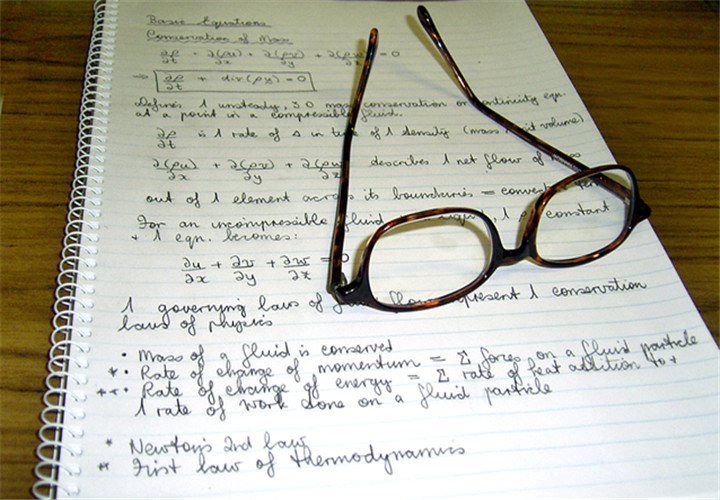 Basic Equations
Conservation of Mass
∂ρ/∂t + ∂(ρu)/∂x + ∂(ρv)/∂y + ∂(ρw)/∂z = 0
⇒ ∂ρ/∂t + div(ρu) = 0
Defines 1 unsteady, 3D mass conservation or continuity eqn.
at a point in a compressible fluid.
∂ρ/∂t is 1 rate of Δ in of 1 density (mass volume)
∂(ρu)/∂x + ∂(ρv)/∂y + ∂(ρw) describes 1 net flow of
out of 1 element across its boundaries =
For an incompressible fluid 1 constant
+ 1 eqn. becomes:
∂u/∂x + ∂v/∂y + ∂w/∂z = 0
1 governing laws of flow represent 1 conservation
laws of physics
• Mass of a fluid is conserved
* • Rate of change of momentum = Σ forces on a fluid particle
** • Rate of change of energy = Σ rate of heat addition to +
1 rate of work done on a fluid particle
* Newton's 2nd law
** First law of thermodynamics